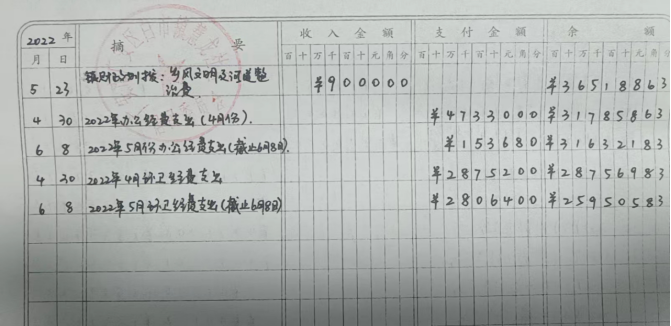 2022 年 摘 要 收 入 金 額 支 付 金 額 余 額
月 日 百 十 万 千 百 十 元 角 分 百 十 万 千 百 十 元 角 分 百 十 万 千 百 十 元 角 分
5 23 镇财政所拨:乡风文明及河道整 ¥900000 ¥36518863
治费.
4 30 2022年办公经费支出(4月份). ¥4733000 ¥31785863
6 8 2022年5月份办公经费支出(截止6月8日). ¥153680 ¥31632183
4 30 2022年4月环卫经费支出 ¥2875200 ¥28756983
6 8 2022年5月环卫经费支出(截止6月8日) ¥2806400 ¥25950583